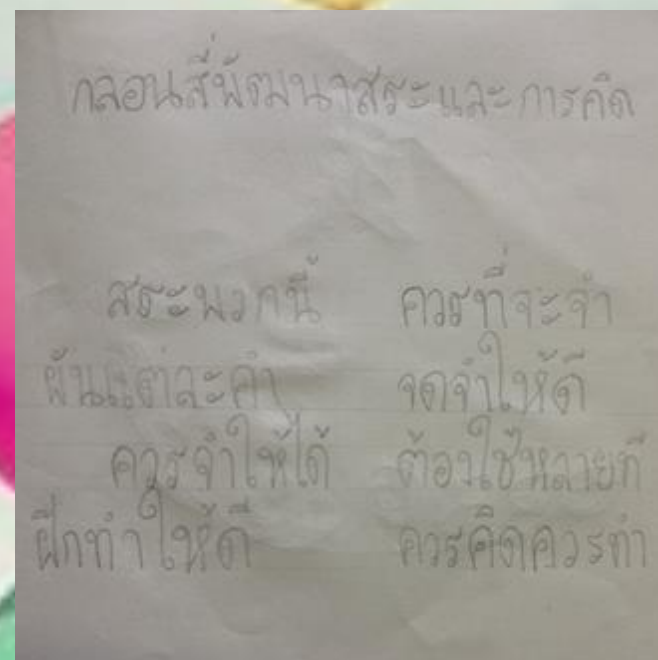 กลอนสี่พัฒนาสระและการคิด
สระพวกนี้ ควรที่จะจำ
ผันแต่ละคำ จดจำให้ดี
ควรจำให้ได้ ต้องใช้หลายที
ฝึกทำให้ดี ควรคิดควรทำ